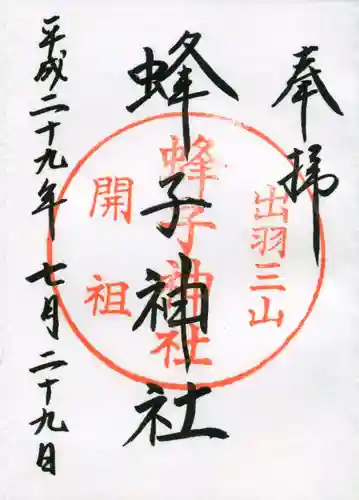 奉拝
出羽三山
蜂子神社
蜂子神社
開祖
平成二十九年七月二十九日